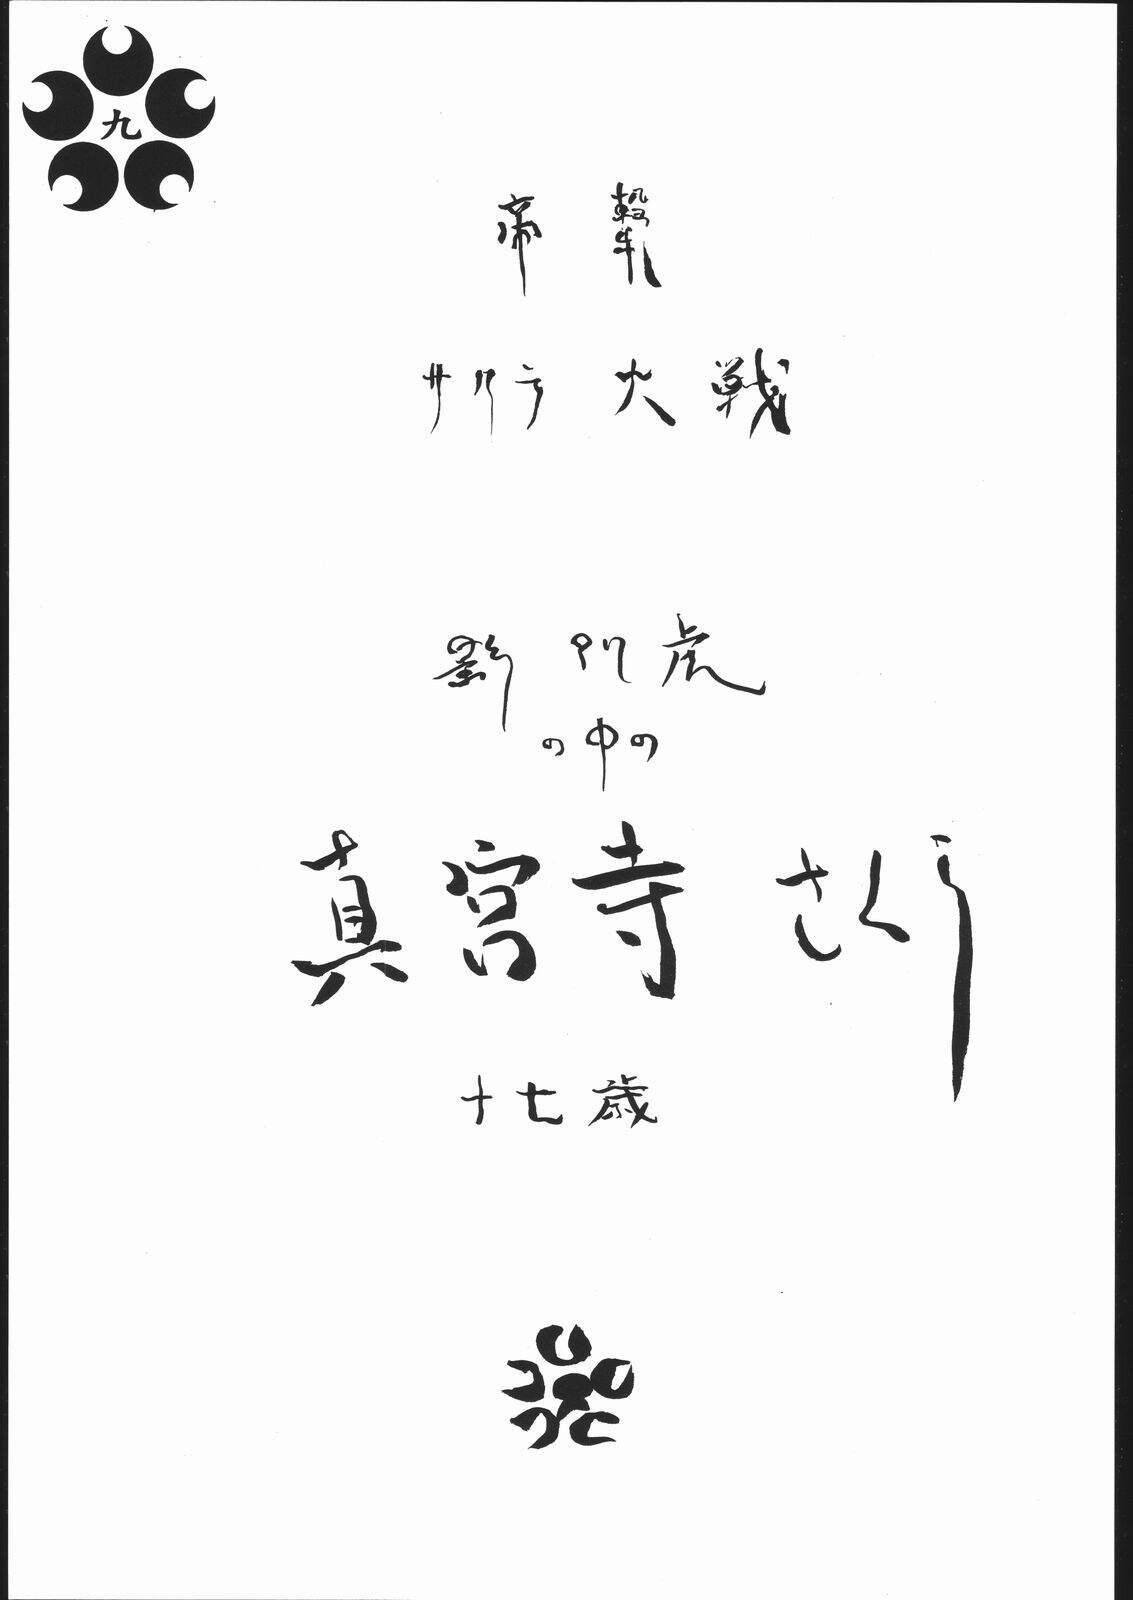 九
帝 撃
サクラ 大戦
虎
の中の
真宮寺 さくら
十七歳